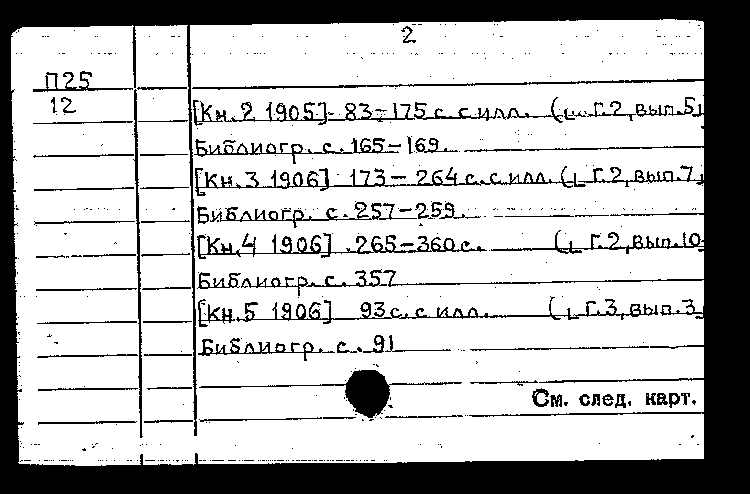 2
П25
12
[Кн. 2 1905] - 83-175 с. с илл. ( Г. 2, вып. 5)
Библиогр. с. 165-169.
[Кн. 3 1906] 173-264 с. с илл. ( Г. 2, вып. 7,
Библиогр. с. 257-259.
[Кн. 4 1906] .265-360 с. ( Г. 2, вып. 10-
Библиогр. с. 357
[Кн. 5 1906] 93 с. с илл. ( Г. 3, вып. 3,
Библиогр. с. 91
См. след. карт.